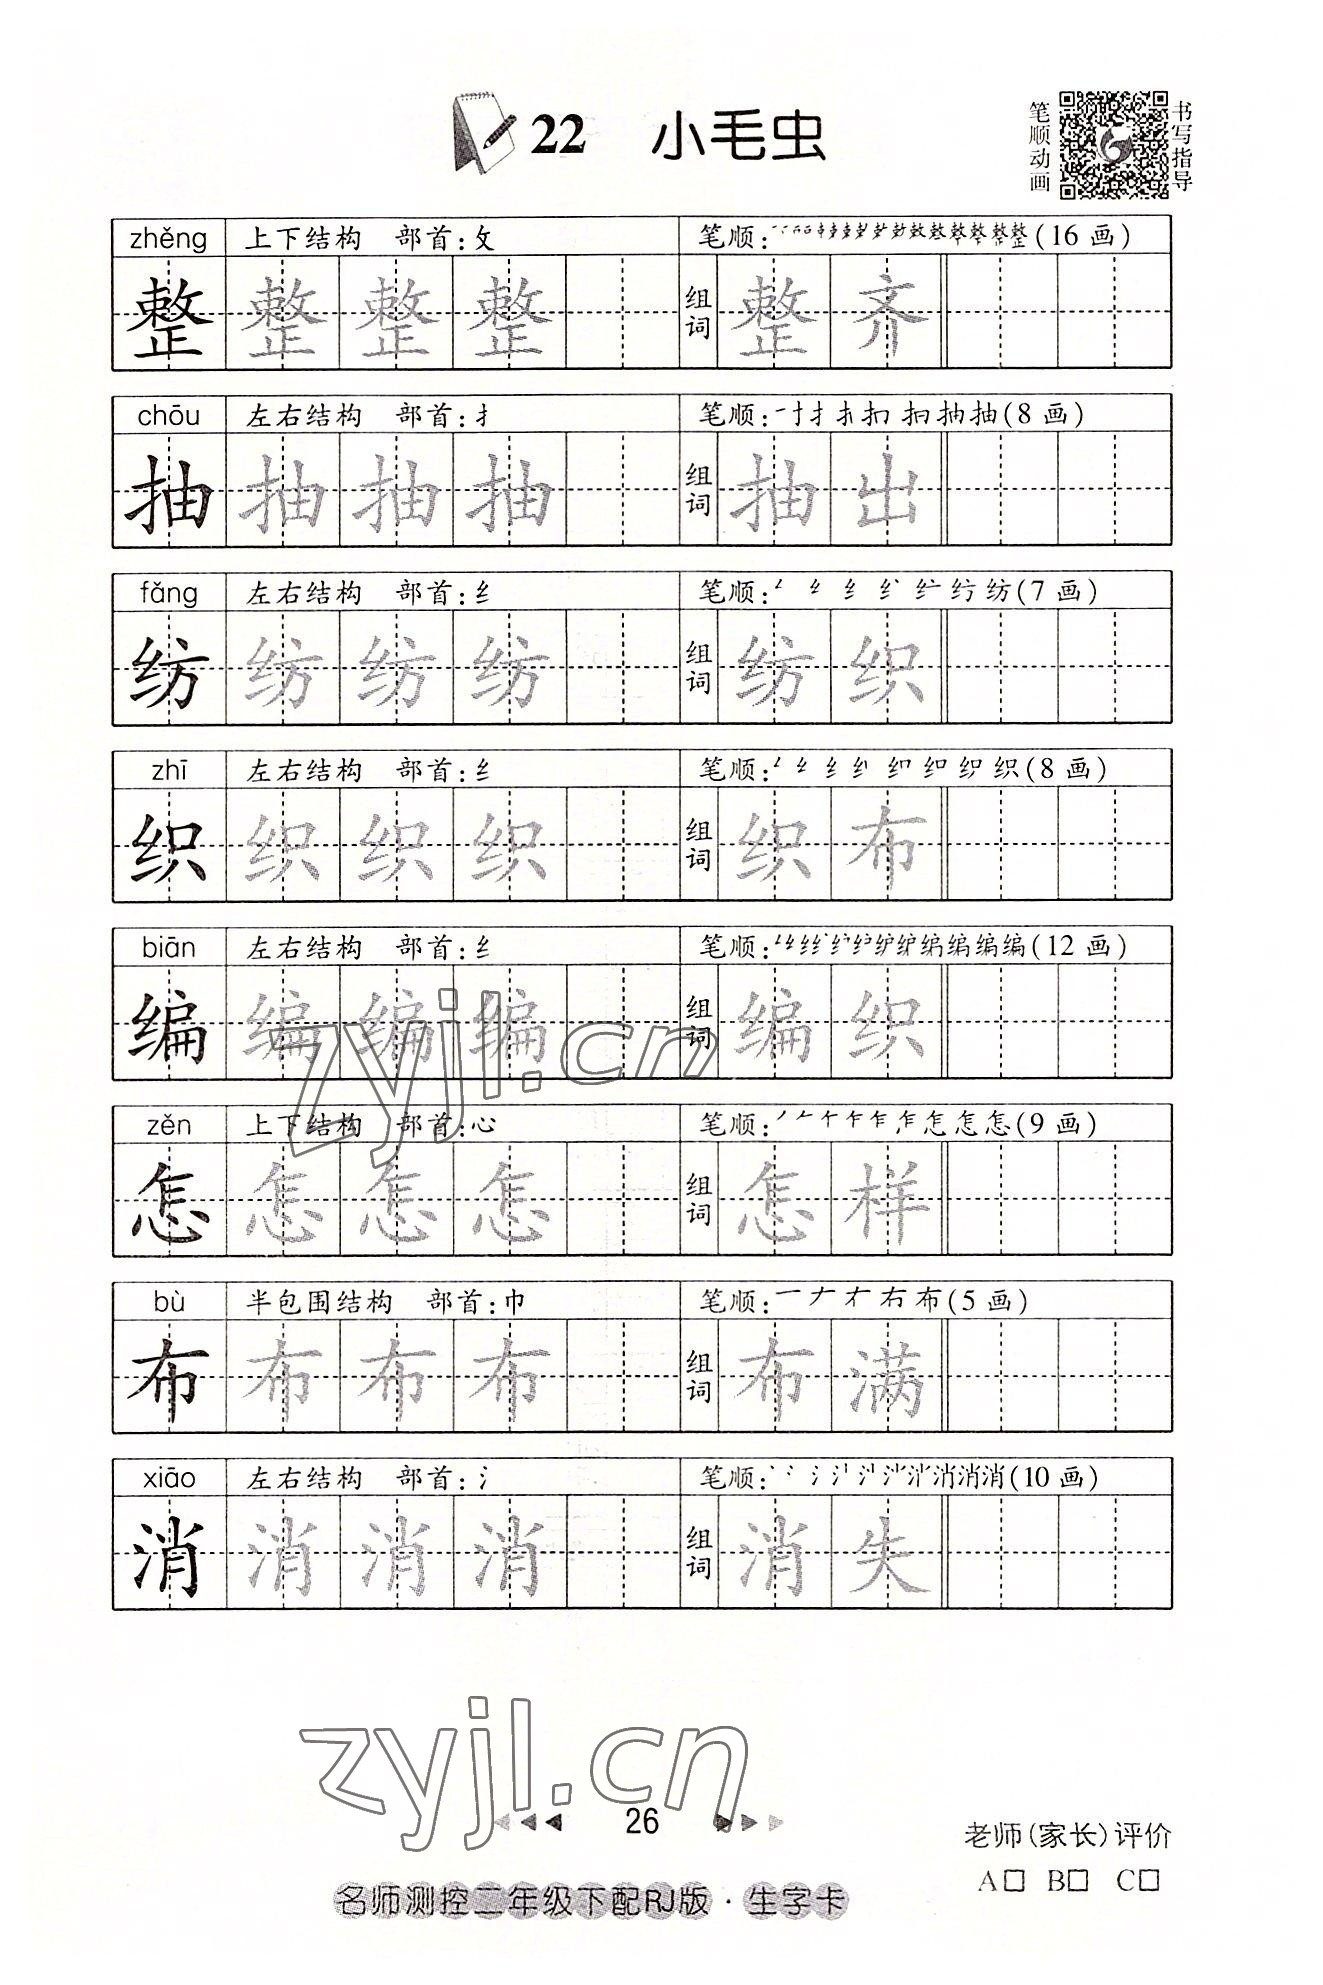 22 小毛虫
笔顺动画
书写指导
zhěng 上下结构 部首:攵 笔顺: (16 画)
整 整 整 整 组词 整 齐
chōu 左右结构 部首:扌 笔顺: (8 画)
抽 抽 抽 抽 组词 抽 出
fǎng 左右结构 部首:纟 笔顺: (7 画)
纺 纺 纺 纺 组词 纺 织
zhī 左右结构 部首:纟 笔顺: (8 画)
织 织 织 织 组词 织 布
biān 左右结构 部首:纟 笔顺: (12 画)
编 编 编 编 组词 编 织
zyjl.cn
zěn 上下结构 部首:心 笔顺: (9 画)
怎 怎 怎 怎 组词 怎 样
bù 半包围结构 部首:巾 笔顺: (5 画)
布 布 布 布 组词 布 满
xiāo 左右结构 部首:氵 笔顺: (10 画)
消 消 消 消 组词 消 失
zyjl.cn
26
老师(家长)评价
A□ B□ C□
名师测控二年级下配RJ版·生字卡